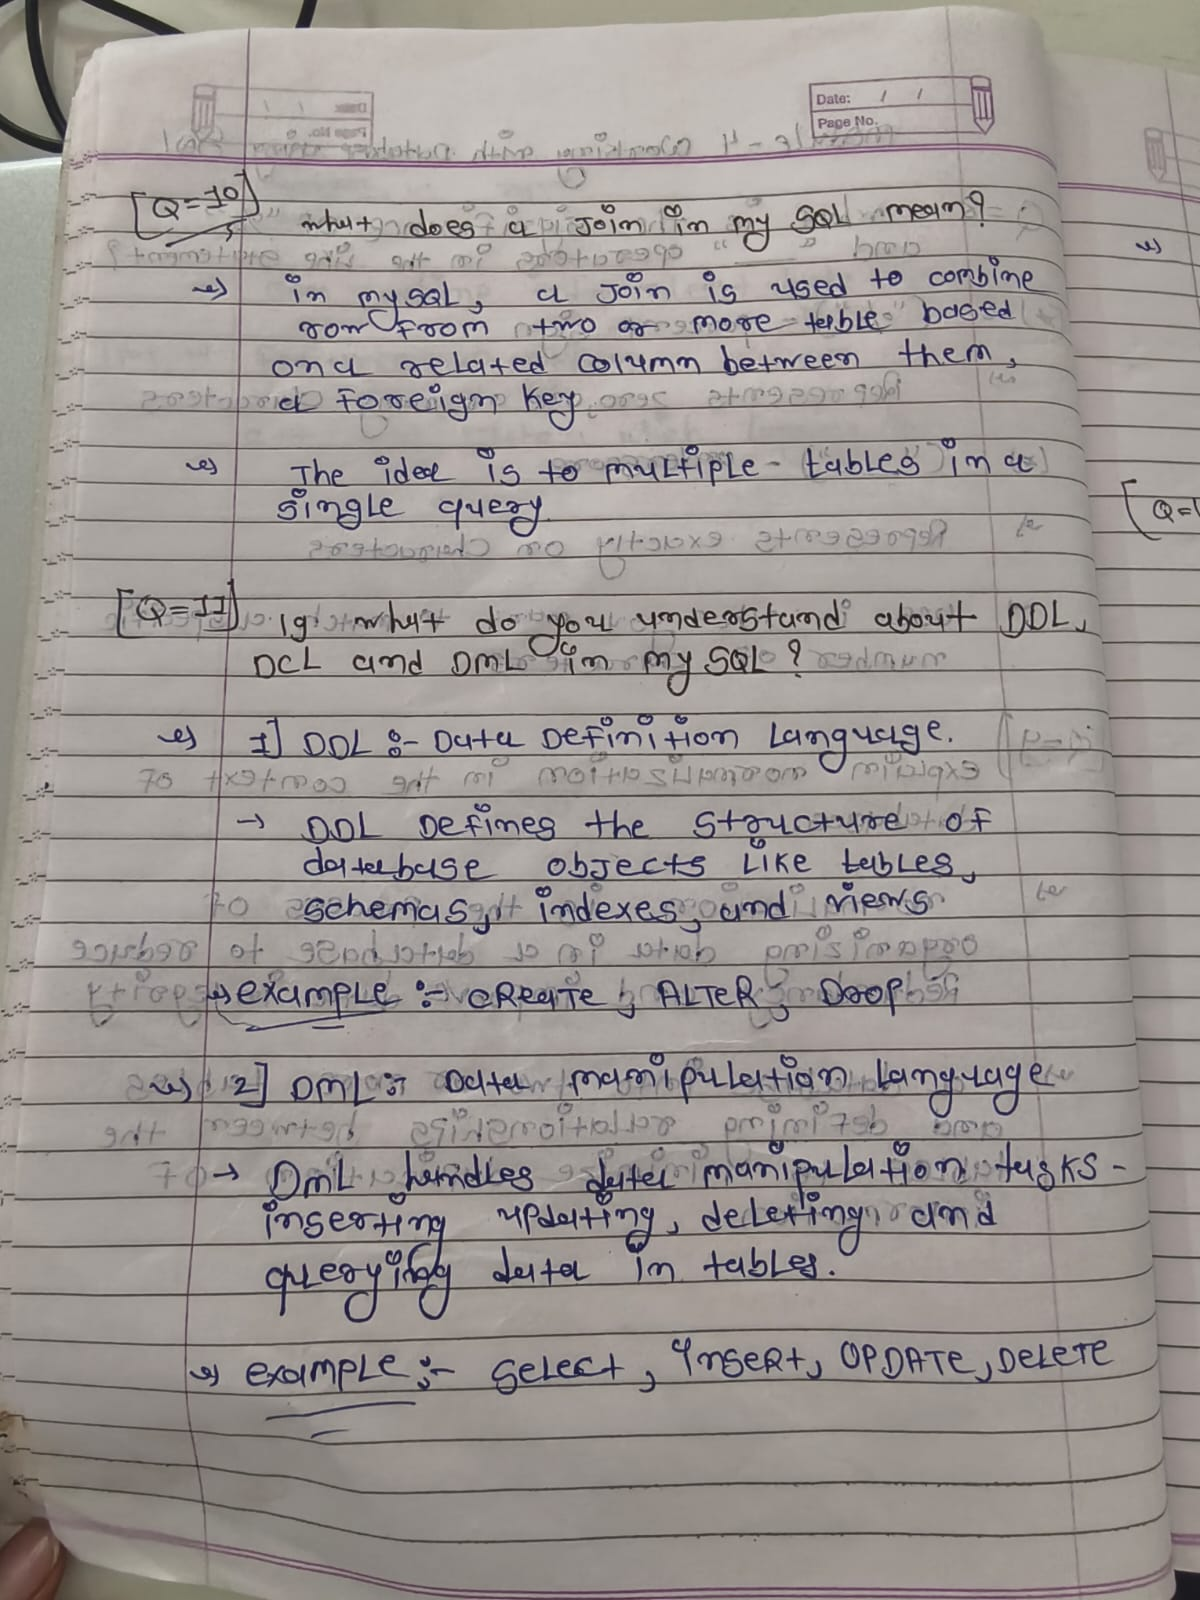 Date: / /
Page No.
[Q=10]
what does a Join in my SQL mean?
in mySQL, a Join is used to combine
row from two or more table based
on a related column between them,
a foreign key
The idea is to multiple tables in a
single query
[Q=11] 19. what do you understand about DDL,
DCL and DML in my SQL ?
1] DDL :- Data Definition Language.
→ DDL Defines the structure of
database objects like tables,
schemas, indexes, and views
example :- CReate, ALTER, Drop
2] DML :- Data manipulation Language
→ DML handles data manipulation tasks -
inserting updating, deleting and
querying data in tables.
example :- Select, Insert, UPDATE, DELETE
[Q=1